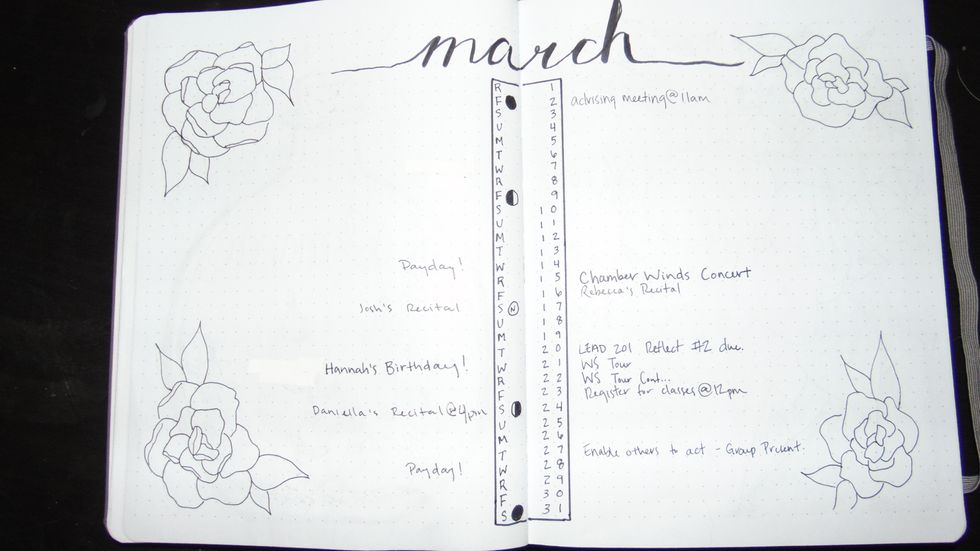 march
R 1
F 2 advising meeting@11am
S 3
U 4
M 5
T 6
W 7
R 8
F 9
S 10
U 11
M 12
T 13
Payday! W 14
R 15 Chamber Winds Concert
F 16 Rebecca's Recital
Josh's Recital S N 17
U 18
M 19
T 20 LEAD 201 Reflect #2 due.
Hannah's Birthday! W 21 WS Tour
R 22 WS Tour Cont...
F 23 Register for classes@12pm
Daniella's Recital@4pm S 24
U 25
M 26
T 27 Enable others to act - Group Present.
Payday! W 28
R 29
F 30
S 31